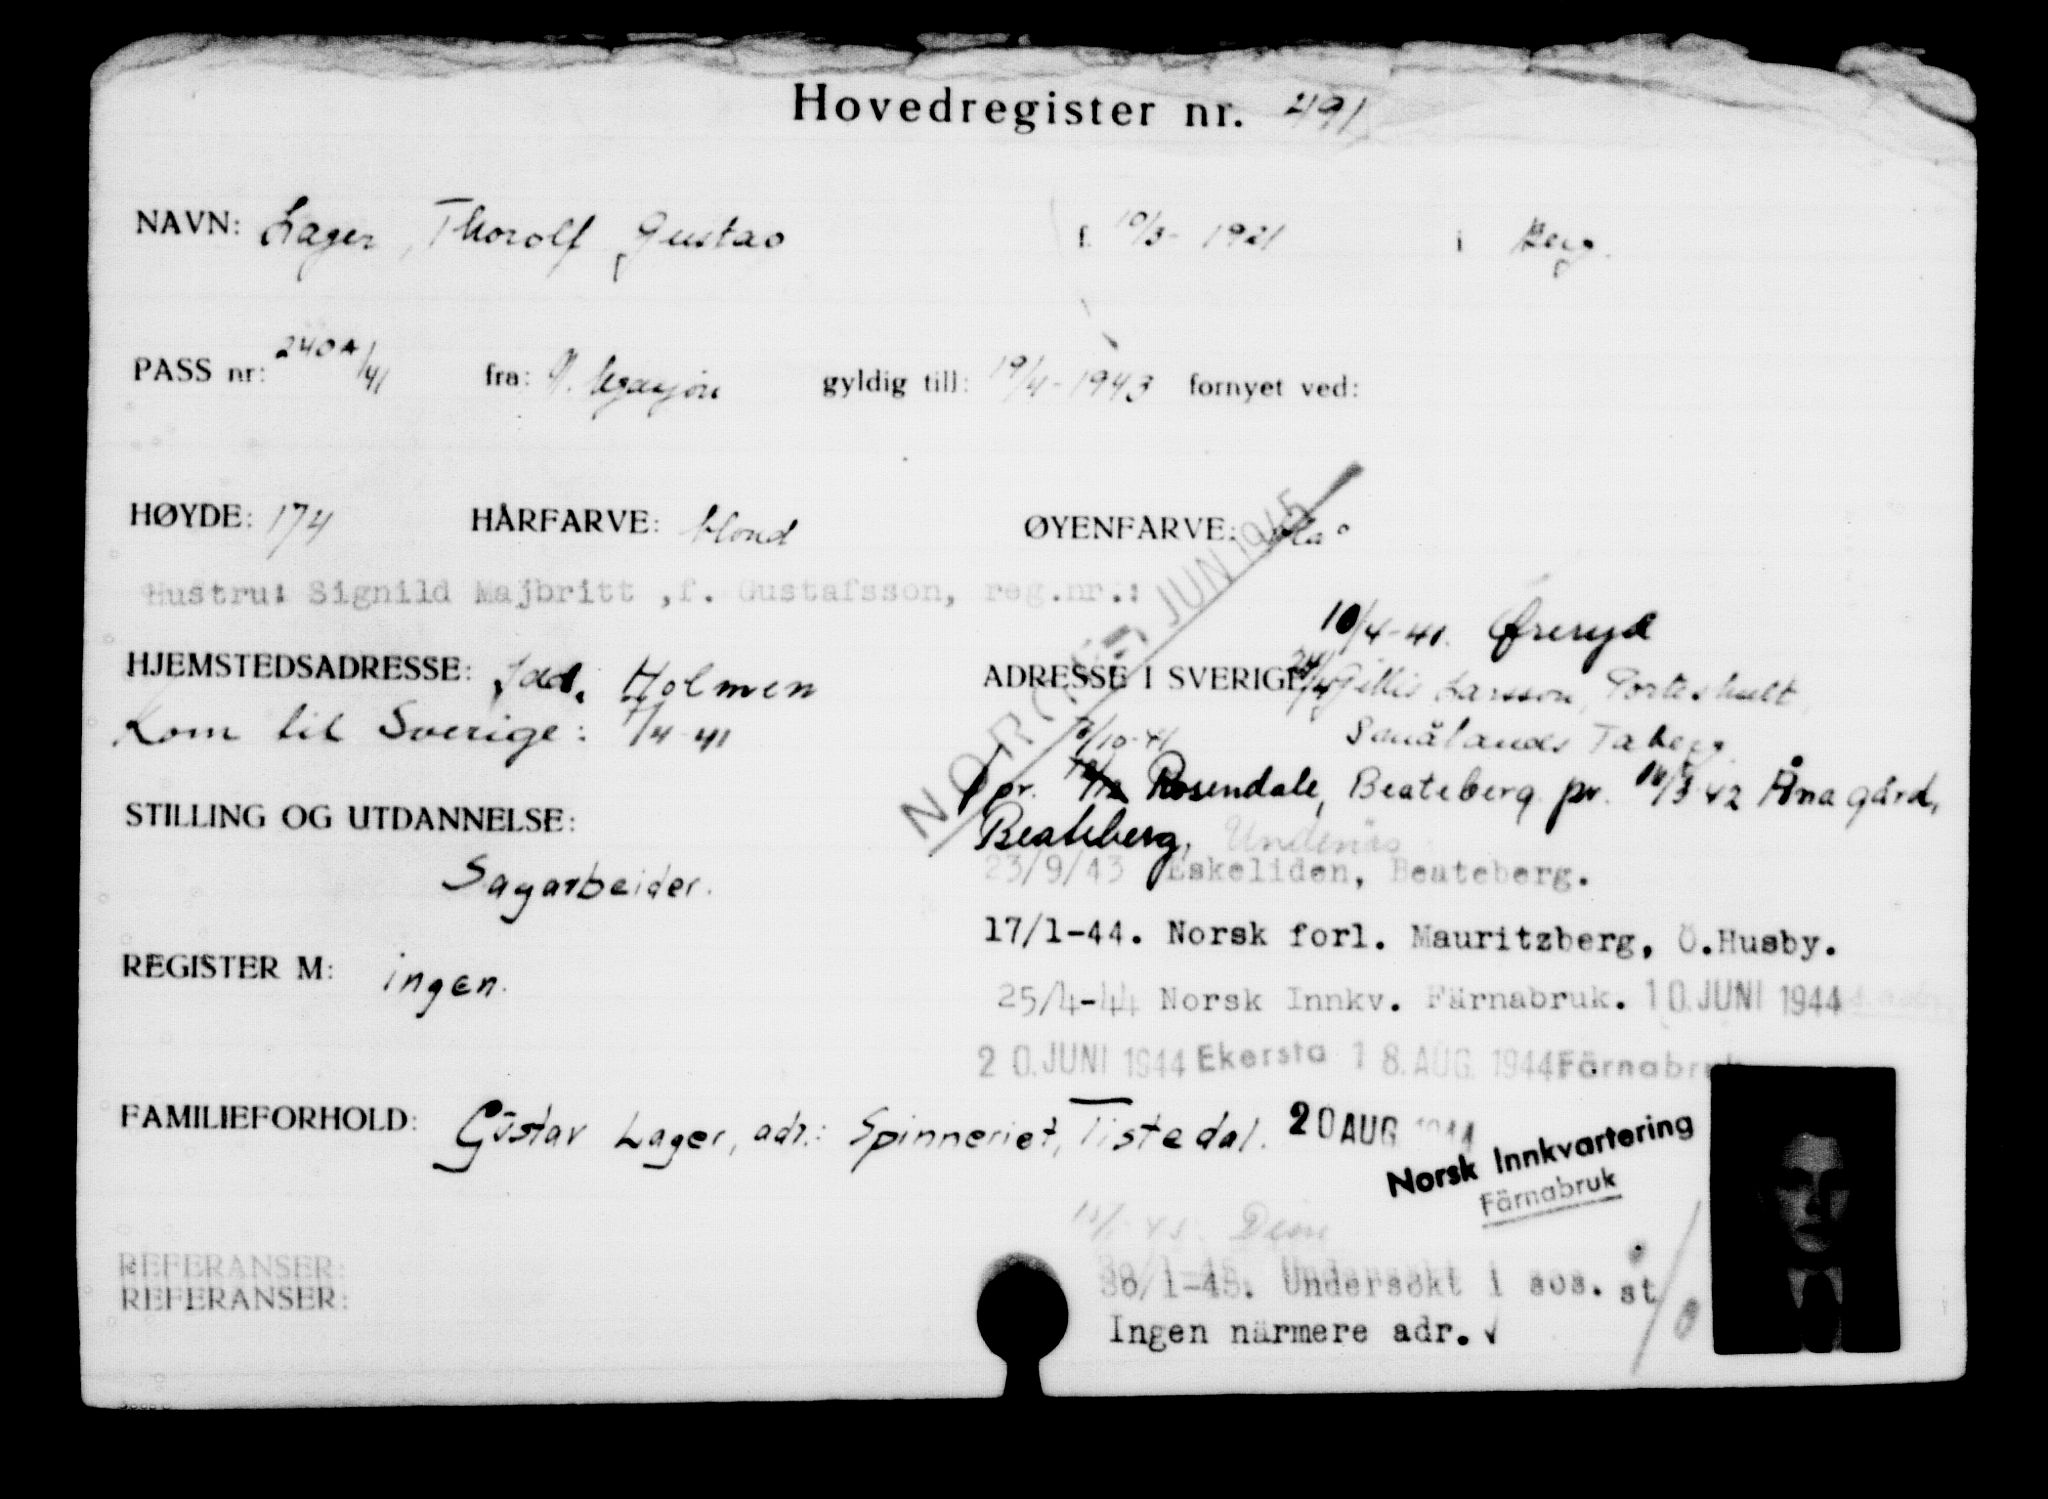 Hovedregister nr. 491
NAVN: Lager, Thorolf Gustav f. 10/3- 1921 i Berg.
PASS nr: 240A/41 fra: N. legasjon gyldig till: 19/4-1943 fornyet ved:
HØYDE: 174 HÅRFARVE: blond ØYENFARVE: blå
Hustru: Signild Majbritt ,f. Gustafsson, reg.nr.:
NORGE JUN 1945
10/4-41. Øreryd
HJEMSTEDSADRESSE: Idd, Holmen ADRESSE I SVERIGE: 24/4 Gillis Larsson, Porteshult
Kom til Sverige: 7/4-41 Smålands Taberg.
/10-41
pr. Rosendale, Beateberg pr. 16/3-42 Åna gård,
STILLING OG UTDANNELSE: Beateberg, Undenäs
23/9/43 Eskeliden, Beateberg.
Sagarbeider.
17/1-44. Norsk forl. Mauritzberg, Ö.Husby.
REGISTER M: ingen.
25/4-44 Norsk Innkv. Färnabruk. 10. JUNI 1944
20. JUNI 1944 Ekersta 18. AUG. 1944 Färnabruk
FAMILIEFORHOLD: Gustav Lager, adr.: Spinneriet, Tistedal. 20 AUG 1944
Norsk Innkvartering
Färnabruk
REFERANSER:
30/1-45. Undersökt i sos. st
REFERANSER:
Ingen närmere adr.